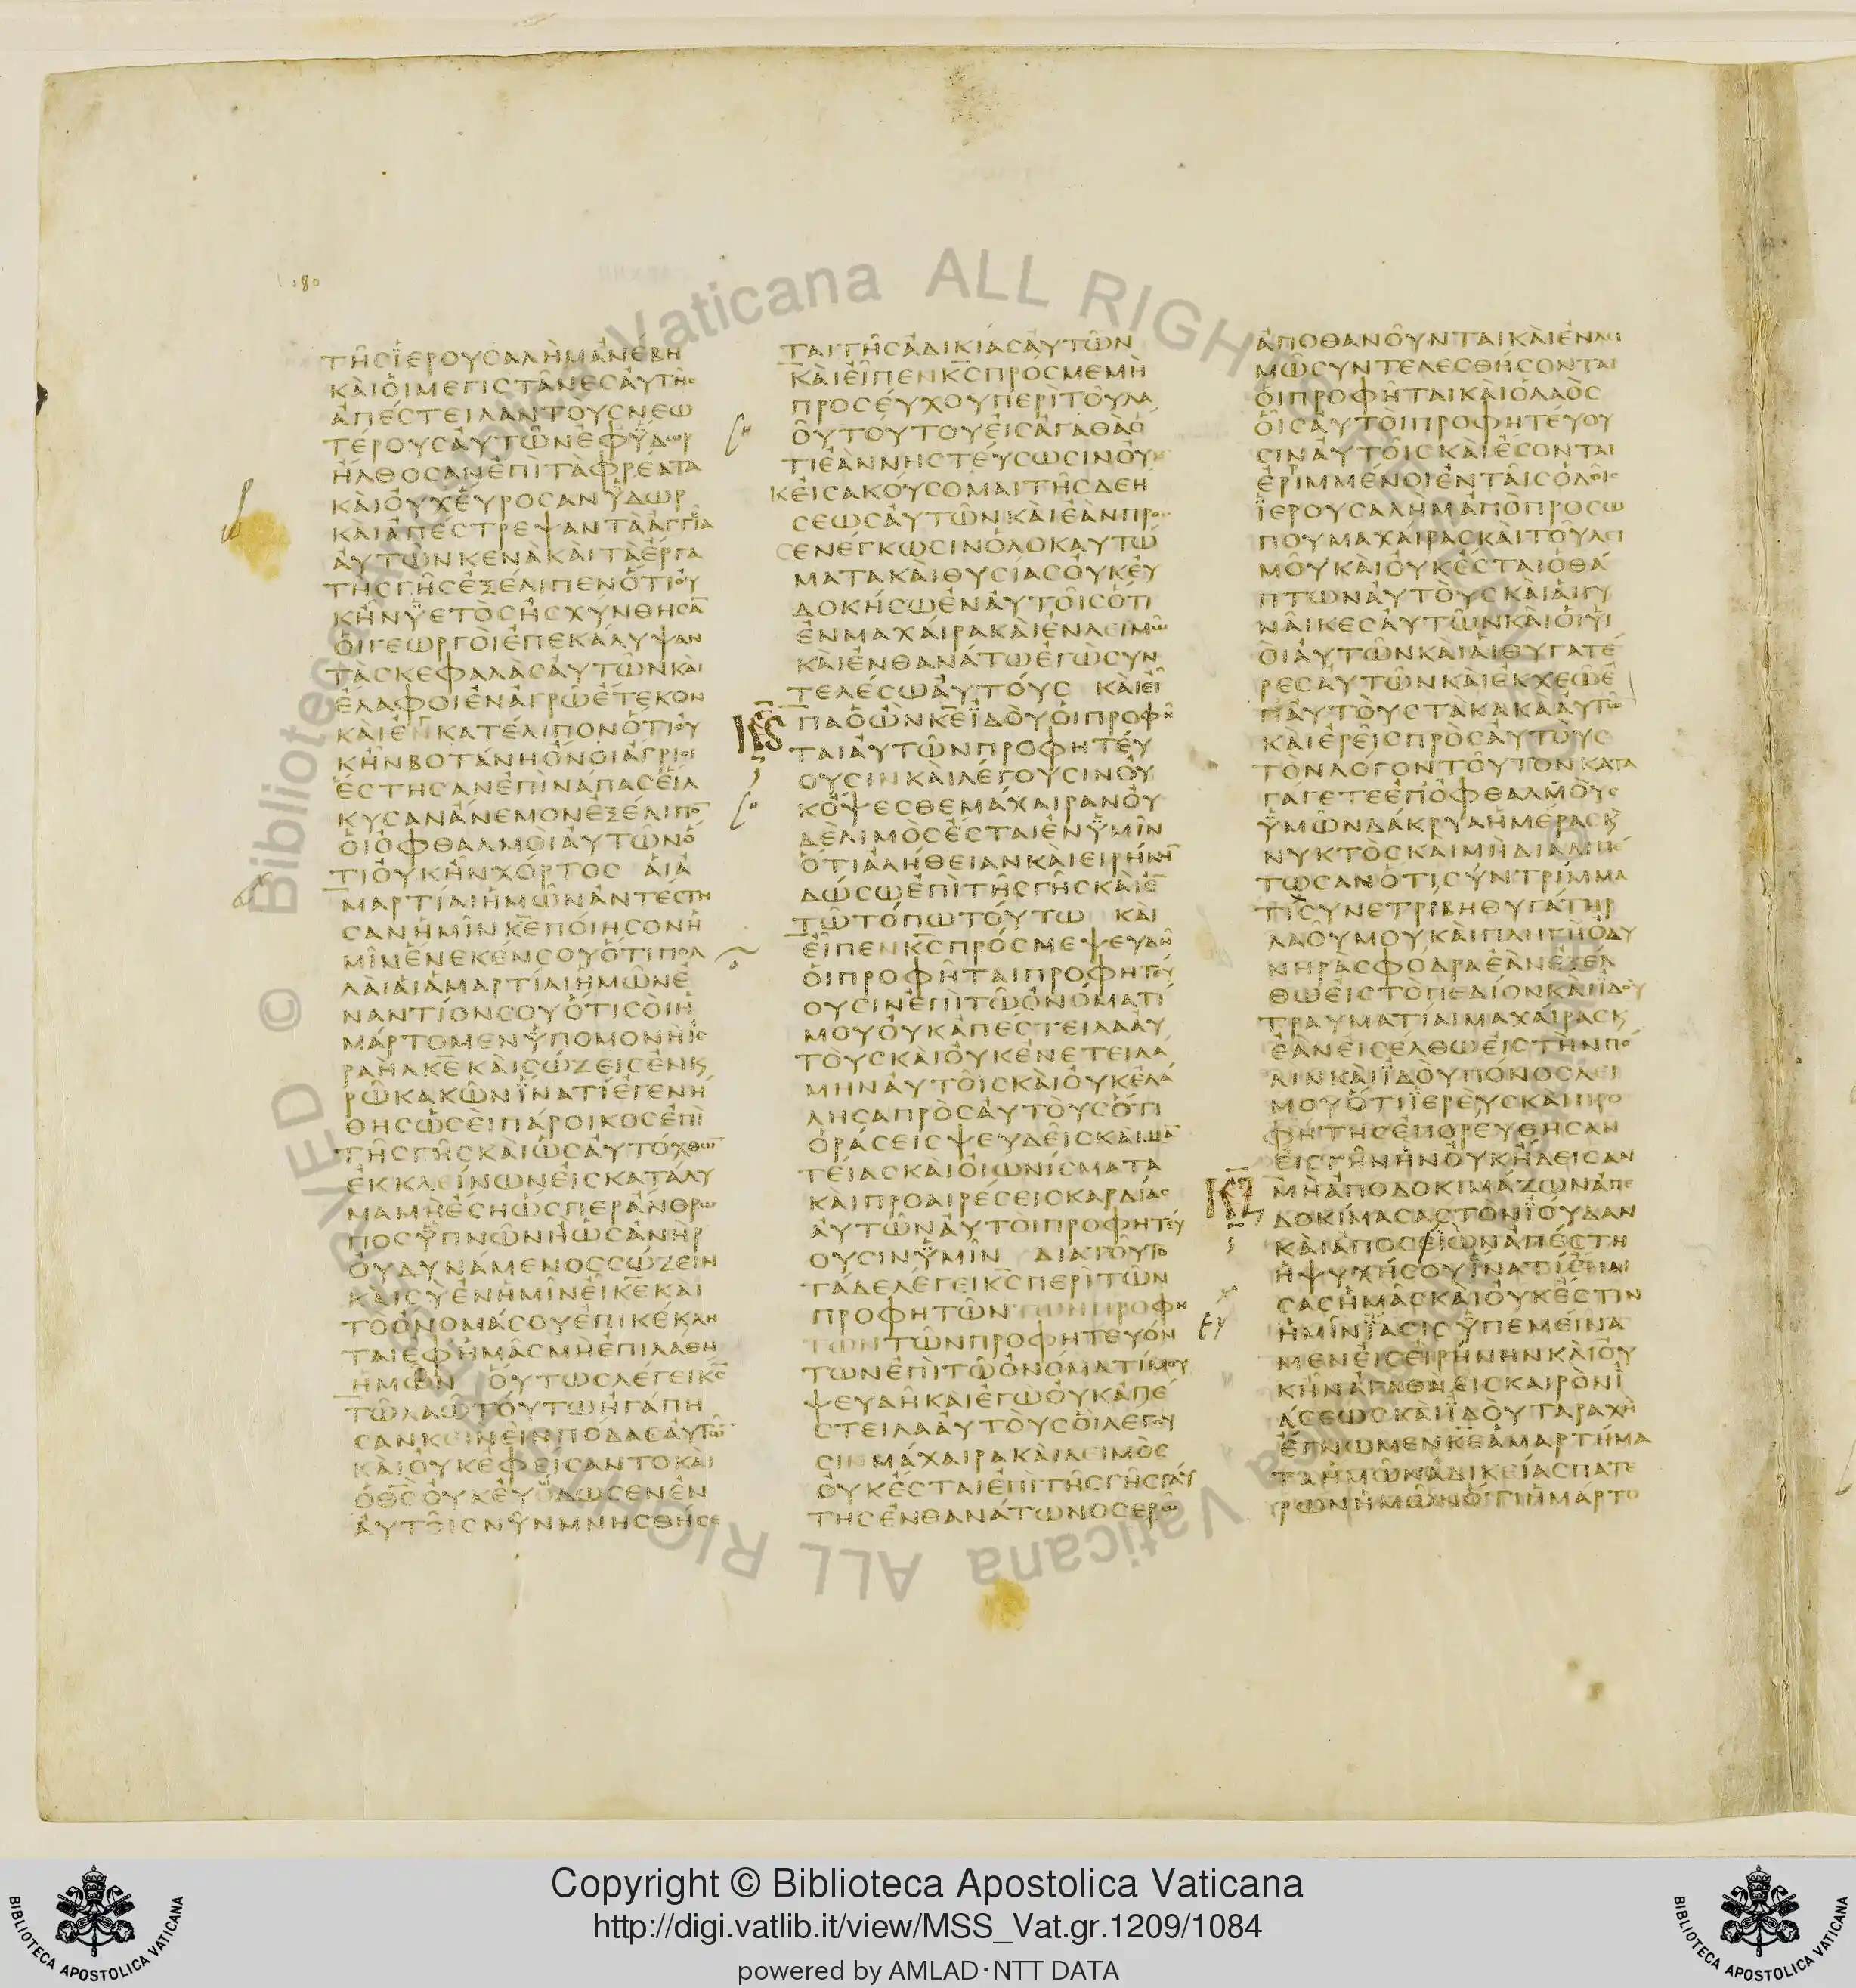 ΤΗϹΪΕΡΟΥϹΑΛΗΜΑΝΕΒΗ
ΚΑΙΟΙΜΕΓΙϹΤΑΝΕϹΑΥΤΗϹ
ΑΠΕϹΤΕΙΛΑΝΤΟΥϹΝΕΩ
ΤΕΡΟΥϹΑΥΤΩΝΕΦΫΔΩΡ
ΗΛΘΟϹΑΝΕΠΙΤΑΦΡΕΑΤΑ
ΚΑΙΟΥΧΕΥΡΟϹΑΝΫΔΩΡ
ΚΑΙΑΠΕϹΤΡΕΨΑΝΤΑΑΓΓΙΑ
ΑΥΤΩΝΚΕΝΑΚΑΙΤΑΕΡΓΑ
ΤΗϹΓΗϹΕΞΕΛΙΠΕΝΟΤΙΟΥ
ΚΗΝΫΕΤΟϹΗϹΧΥΝΘΗϹΑ̅
ΟΙΓΕΩΡΓΟΙΕΠΕΚΑΛΥΨΑΝ
ΤΑϹΚΕΦΑΛΑϹΑΥΤΩΝΚΑΙ
ΕΛΑΦΟΙΕΝΑΓΡΩΕΤΕΚΟΝ
ΚΑΙΕΝΚΑΤΕΛΙΠΟΝΟΤΙΟΥ
ΚΗΝΒΟΤΑΝΗΟΝΟΙΑΓΡΙΟΙ
ΕϹΤΗϹΑΝΕΠΙΝΑΠΑϹΕΙΛ
ΚΥϹΑΝΑΝΕΜΟΝΕΞΕΛΙΠΟ̅
ΟΙΟΦΘΑΛΜΟΙΑΥΤΩΝΟ
ΤΙΟΥΚΗΝΧΟΡΤΟϹ ΑΙΑ
ΜΑΡΤΙΑΙΗΜΩΝΑΝΤΕϹΤΗ
ϹΑΝΗΜΙΝΚ̅Ε̅ΠΟΙΗϹΟΝΗ
ΜΙΝΕΝΕΚΕΝϹΟΥΟΤΙΠΟΛ
ΛΑΙΑΙΑΜΑΡΤΙΑΙΗΜΩΝΕ
ΝΑΝΤΙΟΝϹΟΥΟΤΙϹΟΙΗ
ΜΑΡΤΟΜΕΝΫΠΟΜΟΝΗΙϹ
ΡΑΗΛΚ̅Ε̅ΚΑΙϹΩΖΕΙϹΕΝΚΑΙ
ΡΩΚΑΚΩΝΪΝΑΤΙΕΓΕΝΗ
ΘΗϹΩϹΕΙΠΑΡΟΙΚΟϹΕΠΙ
ΤΗϹΓΗϹΚΑΙΩϹΑΥΤΟΧΘΩ̅
ΕΚΚΛΕΙΝΩΝΕΙϹΚΑΤΑΛΥ
ΜΑΜΗΕϹΗΩϹΠΕΡΑΝΘΡΩ
ΠΟϹΫΠΝΩΝΗΩϹΑΝΗΡ
ΟΥΔΥΝΑΜΕΝΟϹϹΩΖΕΙΝ
ΚΑΙϹΥΕΝΗΜΙΝΕΙΚ̅Ε̅ΚΑΙ
ΤΟΟΝΟΜΑϹΟΥΕΠΙΚΕΚΛΗ
ΤΑΙΕΦΗΜΑϹΜΗΕΠΙΛΑΘΗ
ΗΜΩΝ ΟΥΤΩϹΛΕΓΕΙΚ̅Ϲ̅
ΤΩΛΑΩΤΟΥΤΩΗΓΑΠΗ
ϹΑΝΚΕΙΝΕΙΝΠΟΔΑϹΑΥΤΩ̅
ΚΑΙΟΥΚΕΦΕΙϹΑΝΤΟΚΑΙ
ΟΘ̅Ϲ̅ΟΥΚΕΥΟΔΩϹΕΝΕΝ
ΑΥΤΟΙϹΝΥΝΜΝΗϹΘΗϹΕ
ΤΑΙΤΗϹΑΔΙΚΙΑϹΑΥΤΩΝ
ΚΑΙΕΙΠΕΝΚ̅Ϲ̅ΠΡΟϹΜΕΜΗ
ΠΡΟϹΕΥΧΟΥΠΕΡΙΤΟΥΛΑ
ΟΥΤΟΥΤΟΥΕΙϹΑΓΑΘΑΟ
ΤΙΕΑΝΝΗϹΤΕΥϹΩϹΙΝΟΥ
ΚΕΙϹΑΚΟΥϹΟΜΑΙΤΗϹΔΕΗ
ϹΕΩϹΑΥΤΩΝΚΑΙΕΑΝΠΡΟϹ
ΕΝΕΓΚΩϹΙΝΟΛΟΚΑΥΤΩ
ΜΑΤΑΚΑΙΘΥϹΙΑϹΟΥΚΕΥ
ΔΟΚΗϹΩΕΝΑΥΤΟΙϹΟΤΙ
ΕΝΜΑΧΑΙΡΑΚΑΙΕΝΛΕΙΜΩ
ΚΑΙΕΝΘΑΝΑΤΩΕΓΩϹΥΝ
ΤΕΛΕϹΩΑΥΤΟΥϹ ΚΑΙΕΙ
Κ̅Ϛ̅
ΠΑΟΩΝΚ̅Ε̅ΪΔΟΥΟΙΠΡΟΦΗ
ΤΑΙΑΥΤΩΝΠΡΟΦΗΤΕΥ
ΟΥϹΙΝΚΑΙΛΕΓΟΥϹΙΝΟΥ
ΚΟΨΕϹΘΕΜΑΧΑΙΡΑΝΟΥ
ΔΕΛΙΜΟϹΕϹΤΑΙΕΝΫΜΙΝ
ΟΤΙΑΛΗΘΕΙΑΝΚΑΙΕΙΡΗΝΗ̅
ΔΩϹΩΕΠΙΤΗϹΓΗϹΚΑΙΕ̅
ΤΩΤΟΠΩΤΟΥΤΩ ΚΑΙ
ΕΙΠΕΝΚ̅Ϲ̅ΠΡΟϹΜΕΨΕΥΔΗ
ΟΙΠΡΟΦΗΤΑΙΠΡΟΦΗΤΕΥ
ΟΥϹΙΝΕΠΙΤΩΟΝΟΜΑΤΙ
ΜΟΥΟΥΚΑΠΕϹΤΕΙΛΑΑΥ
ΤΟΥϹΚΑΙΟΥΚΕΝΕΤΕΙΛΑ
ΜΗΝΑΥΤΟΙϹΚΑΙΟΥΚΕΛΑ
ΛΗϹΑΠΡΟϹΑΥΤΟΥϹΟΤΙ
ΟΡΑϹΕΙϹΨΕΥΔΕΙϹΚΑΙΜΑ̅
ΤΕΙΑϹΚΑΙΟΙΩΝΙϹΜΑΤΑ
ΚΑΙΠΡΟΑΙΡΕϹΕΙϹΚΑΡΔΙΑϹ
ΑΥΤΩΝΑΥΤΟΙΠΡΟΦΗΤΕΥ
ΟΥϹΙΝΫΜΙΝ ΔΙΑΤΟΥΤΟ
ΤΑΔΕΛΕΓΕΙΚ̅Ϲ̅ΠΕΡΙΤΩΝ
ΠΡΟΦΗΤΩΝΤΩΝΠΡΟΦΗ
ΤΩΝΤΩΝΠΡΟΦΗΤΕΥΟΝ
ΤΩΝΕΠΙΤΩΟΝΟΜΑΤΙΜΟΥ
ΨΕΥΔΗΚΑΙΕΓΩΟΥΚΑΠΕ
ϹΤΕΙΛΑΑΥΤΟΥϹΟΙΛΕΓΟΥ
ϹΙΝΜΑΧΑΙΡΑΚΑΙΛΕΙΜΟϹ
ΟΥΚΕϹΤΑΙΕΠΙΤΗϹΓΗϹΤΑΥ
ΤΗϹΕΝΘΑΝΑΤΩΝΟϹΕΡΩ
ΑΠΟΘΑΝΟΥΝΤΑΙΚΑΙΕΝΛΙ
ΜΩϹΥΝΤΕΛΕϹΘΗϹΟΝΤΑΙ
ΟΙΠΡΟΦΗΤΑΙΚΑΙΟΛΑΟϹ
ΟΙϹΑΥΤΟΙΠΡΟΦΗΤΕΥΟΥ
ϹΙΝΑΥΤΟΙϹΚΑΙΕϹΟΝΤΑΙ
ΕΡΙΜΜΕΝΟΙΕΝΤΑΙϹΟΔΟΙϹ
ΪΕΡΟΥϹΑΛΗΜΑΠΟΠΡΟϹΩ
ΠΟΥΜΑΧΑΙΡΑϹΚΑΙΤΟΥΛΕΙ
ΜΟΥΚΑΙΟΥΚΕϹΤΑΙΟΘΑ
ΠΤΩΝΑΥΤΟΥϹΚΑΙΑΙΓΥ
ΝΑΙΚΕϹΑΥΤΩΝΚΑΙΟΙΥΙ
ΟΙΑΥΤΩΝΚΑΙΑΙΘΥΓΑΤΕ
ΡΕϹΑΥΤΩΝΚΑΙΕΚΧΕΩΕ
ΠΑΥΤΟΥϹΤΑΚΑΚΑΑΥΤΩ̅
ΚΑΙΕΡΕΙϹΠΡΟϹΑΥΤΟΥϹ
ΤΟΝΛΟΓΟΝΤΟΥΤΟΝΚΑΤΑ
ΓΑΓΕΤΕΕΠΟΦΘΑΛΜΟΥϹ
ΫΜΩΝΔΑΚΡΥΑΗΜΕΡΑϹΚΑΙ
ΝΥΚΤΟϹΚΑΙΜΗΔΙΑΛΙΠΕ
ΤΩϹΑΝΟΤΙϹΥΝΤΡΙΜΜΑ
ΤΙϹΥΝΕΤΡΙΒΗΘΥΓΑΤΗΡ
ΛΑΟΥΜΟΥΚΑΙΠΛΗΓΗΟΔΥ
ΝΗΡΑϹΦΟΔΡΑΕΑΝΕΞΕΛ
ΘΩΕΙϹΤΟΠΕΔΙΟΝΚΑΙΪΔΟΥ
ΤΡΑΥΜΑΤΙΑΙΜΑΧΑΙΡΑϹΚΑΙ
ΕΑΝΕΙϹΕΛΘΩΕΙϹΤΗΝΠΟ
ΛΙΝΚΑΙΪΔΟΥΠΟΝΟϹΛΕΙ
ΜΟΥΟΤΙΪΕΡΕΥϹΚΑΙΠΡΟ
ΦΗΤΗϹΕΠΟΡΕΥΘΗϹΑΝ
ΕΙϹΓΗΝΗΝΟΥΚΗΔΕΙϹΑΝ
Κ̅Ζ̅
ΜΗΑΠΟΔΟΚΙΜΑΖΩΝΑΠΕ
ΔΟΚΙΜΑϹΑϹΤΟΝΪΟΥΔΑΝ
ΚΑΙΑΠΟϹΕΙΩΝΑΠΕϹΤΗ
ΗΨΥΧΗϹΟΥΪΝΑΤΙΕΠΑΙ
ϹΑϹΗΜΑϹΚΑΙΟΥΚΕϹΤΙΝ
ΗΜΙΝΪΑϹΙϹΫΠΕΜΕΙΝΑ
ΜΕΝΕΙϹΕΙΡΗΝΗΝΚΑΙΟΥ
ΚΗΝΑΓΑΘΑΕΙϹΚΑΙΡΟΝΙ
ΑϹΕΩϹΚΑΙΪΔΟΥΤΑΡΑΧΗ
ΕΓΝΩΜΕΝΚ̅Ε̅ΑΜΑΡΤΗΜΑ
ΤΑΗΜΩΝΑΔΙΚΕΙΑϹΠΑΤΕ
ΡΩΝΗΜΩΝΟΤΙΗΜΑΡΤΟ
Copyright © Biblioteca Apostolica Vaticana
http://digi.vatlib.it/view/MSS_Vat.gr.1209/1084
powered by AMLAD·NTT DATA
BIBLIOTECA APOSTOLICA VATICANA
BIBLIOTECA APOSTOLICA VATICANA